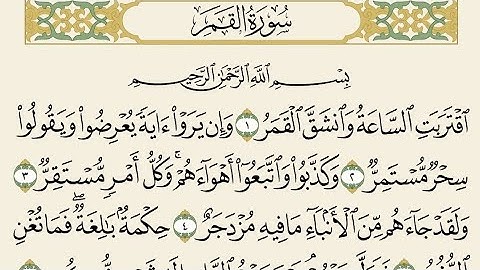 سُورَةُ القَمَرِ
بِسْمِ اللَّهِ الرَّحْمَٰنِ الرَّحِيمِ
ٱقْتَرَبَتِ ٱلسَّاعَةُ وَٱنشَقَّ ٱلْقَمَرُ ١ وَإِن يَرَوْا۟ ءَايَةً يُعْرِضُوا۟ وَيَقُولُوا۟
سِحْرٌ مُّسْتَمِرٌّ ٢ وَكَذَّبُوا۟ وَٱتَّبَعُوٓا۟ أَهْوَآءَهُمْ ۚ وَكُلُّ أَمْرٍ مُّسْتَقِرٌّ ٣
وَلَقَدْ جَآءَهُم مِّنَ ٱلْأَنۢبَآءِ مَا فِيهِ مُزْدَجَرٌ ٤ حِكْمَةٌۢ بَٰلِغَةٌ ۖ فَمَا تُغْنِ